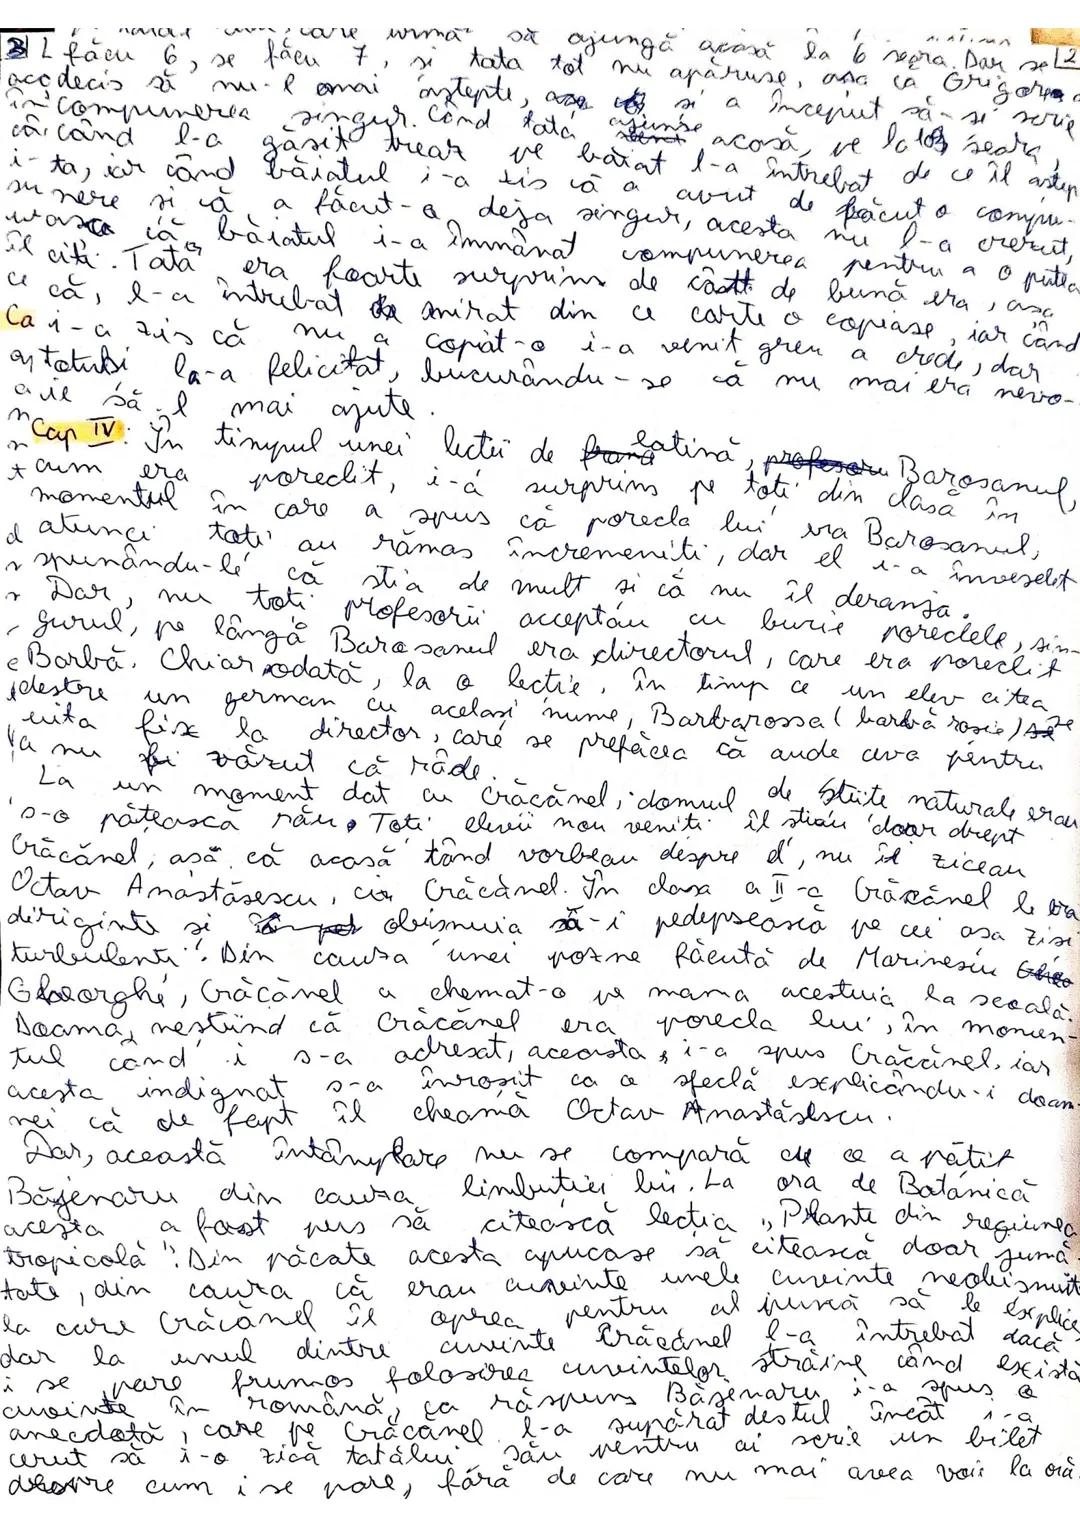 care urma să ajungă acasă la 6 seara. Dar se
făcu 6, se făcu 7, și tata tot nu apăruse, așa că Grigore a
decis să nu-l mai aștepte, și a început să-și scrie
compunerea singur. Când tata ajunse acasă, pe la 10 seara,
când l-a găsit treaz pe băiat l-a întrebat de ce îl aștep
ta, iar când băiatul i-a zis că a avut de făcut o compu-
nere și că a făcut-o deja singur, acesta nu l-a crezut,
că băiatul i-a înmânat compunerea pentru a o putea
citi. Tata era foarte surprins de cât de bună era, așa
că, l-a întrebat mirat din ce carte o copiase, iar când
i-a zis că nu a copiat-o i-a venit greu a crede, dar
totuși l-a felicitat, bucurându-se că nu mai era nevo-
ie să-l mai ajute.
Cap IV: În timpul unei lecții de latină, Barosanul,
cum era poreclit, i-a surprins pe toți din clasă în
momentul în care a spus că porecla lui era Barosanul,
atunci toți au rămas încremeniți, dar el i-a înveselit
spunându-le că știa de mult și că nu îl deranja.
Dar, nu toți profesorii acceptau cu bucurie poreclele, sin-
gurul, pe lângă Barosanul era directorul, care era poreclit
Barbă. Chiar odată, la o lecție, în timp ce un elev citea
despre un german cu același nume, Barbarossa (barbă roșie) se
uita fix la director, care se prefăcea că aude ceva pentru
a nu fi văzut că râde.
La un moment dat cu Crăcănel, domnul de Științe naturale erau
s-o pățească rău. Toți elevii nou veniți îl știau doar drept
Crăcănel, așa că acasă când vorbeau despre el, nu îi ziceau
Octav Anastăsescu, ci Crăcănel. În clasa a II-a Crăcănel le era
diriginte și obișnuia să-i pedepsească pe cei așa ziși
"turbulenți". Din cauza unei pozne făcută de Marinescu
Gheorghe, Crăcănel a chemat-o pe mama acestuia la școală.
Doamna, neștiind că Crăcănel era porecla lui, în momen-
tul când i s-a adresat, aceasta i-a spus Crăcănel, iar
acesta indignat s-a înroșit ca o sfeclă explicându-i doam-
nei că de fapt îl cheamă Octav Anastăsescu.
Dar, această întâmplare nu se compară cu ce a pățit
Băjenaru din cauza limbuției lui. La ora de Botanică
acesta a fost pus să citească lecția "Plante din regiunea
tropicală". Din păcate acesta apucase să citească doar jumă-
tate, din cauza că erau cuvinte unele cuvinte neobișnuit
la care Crăcănel îl oprea pentru al pune să le explice,
dar la unul dintre cuvinte Crăcănel l-a întrebat dacă
i se pare frumos folosirea cuvintelor străine când există
cuvinte în română, ca răspuns Băjenaru i-a spus o
anecdotă, care pe Crăcănel l-a supărat destul încât i-a
cerut să i-o zică tatălui său pentru ai scrie un bilet
despre cum i se pare, fără de care nu mai avea voie la oră.